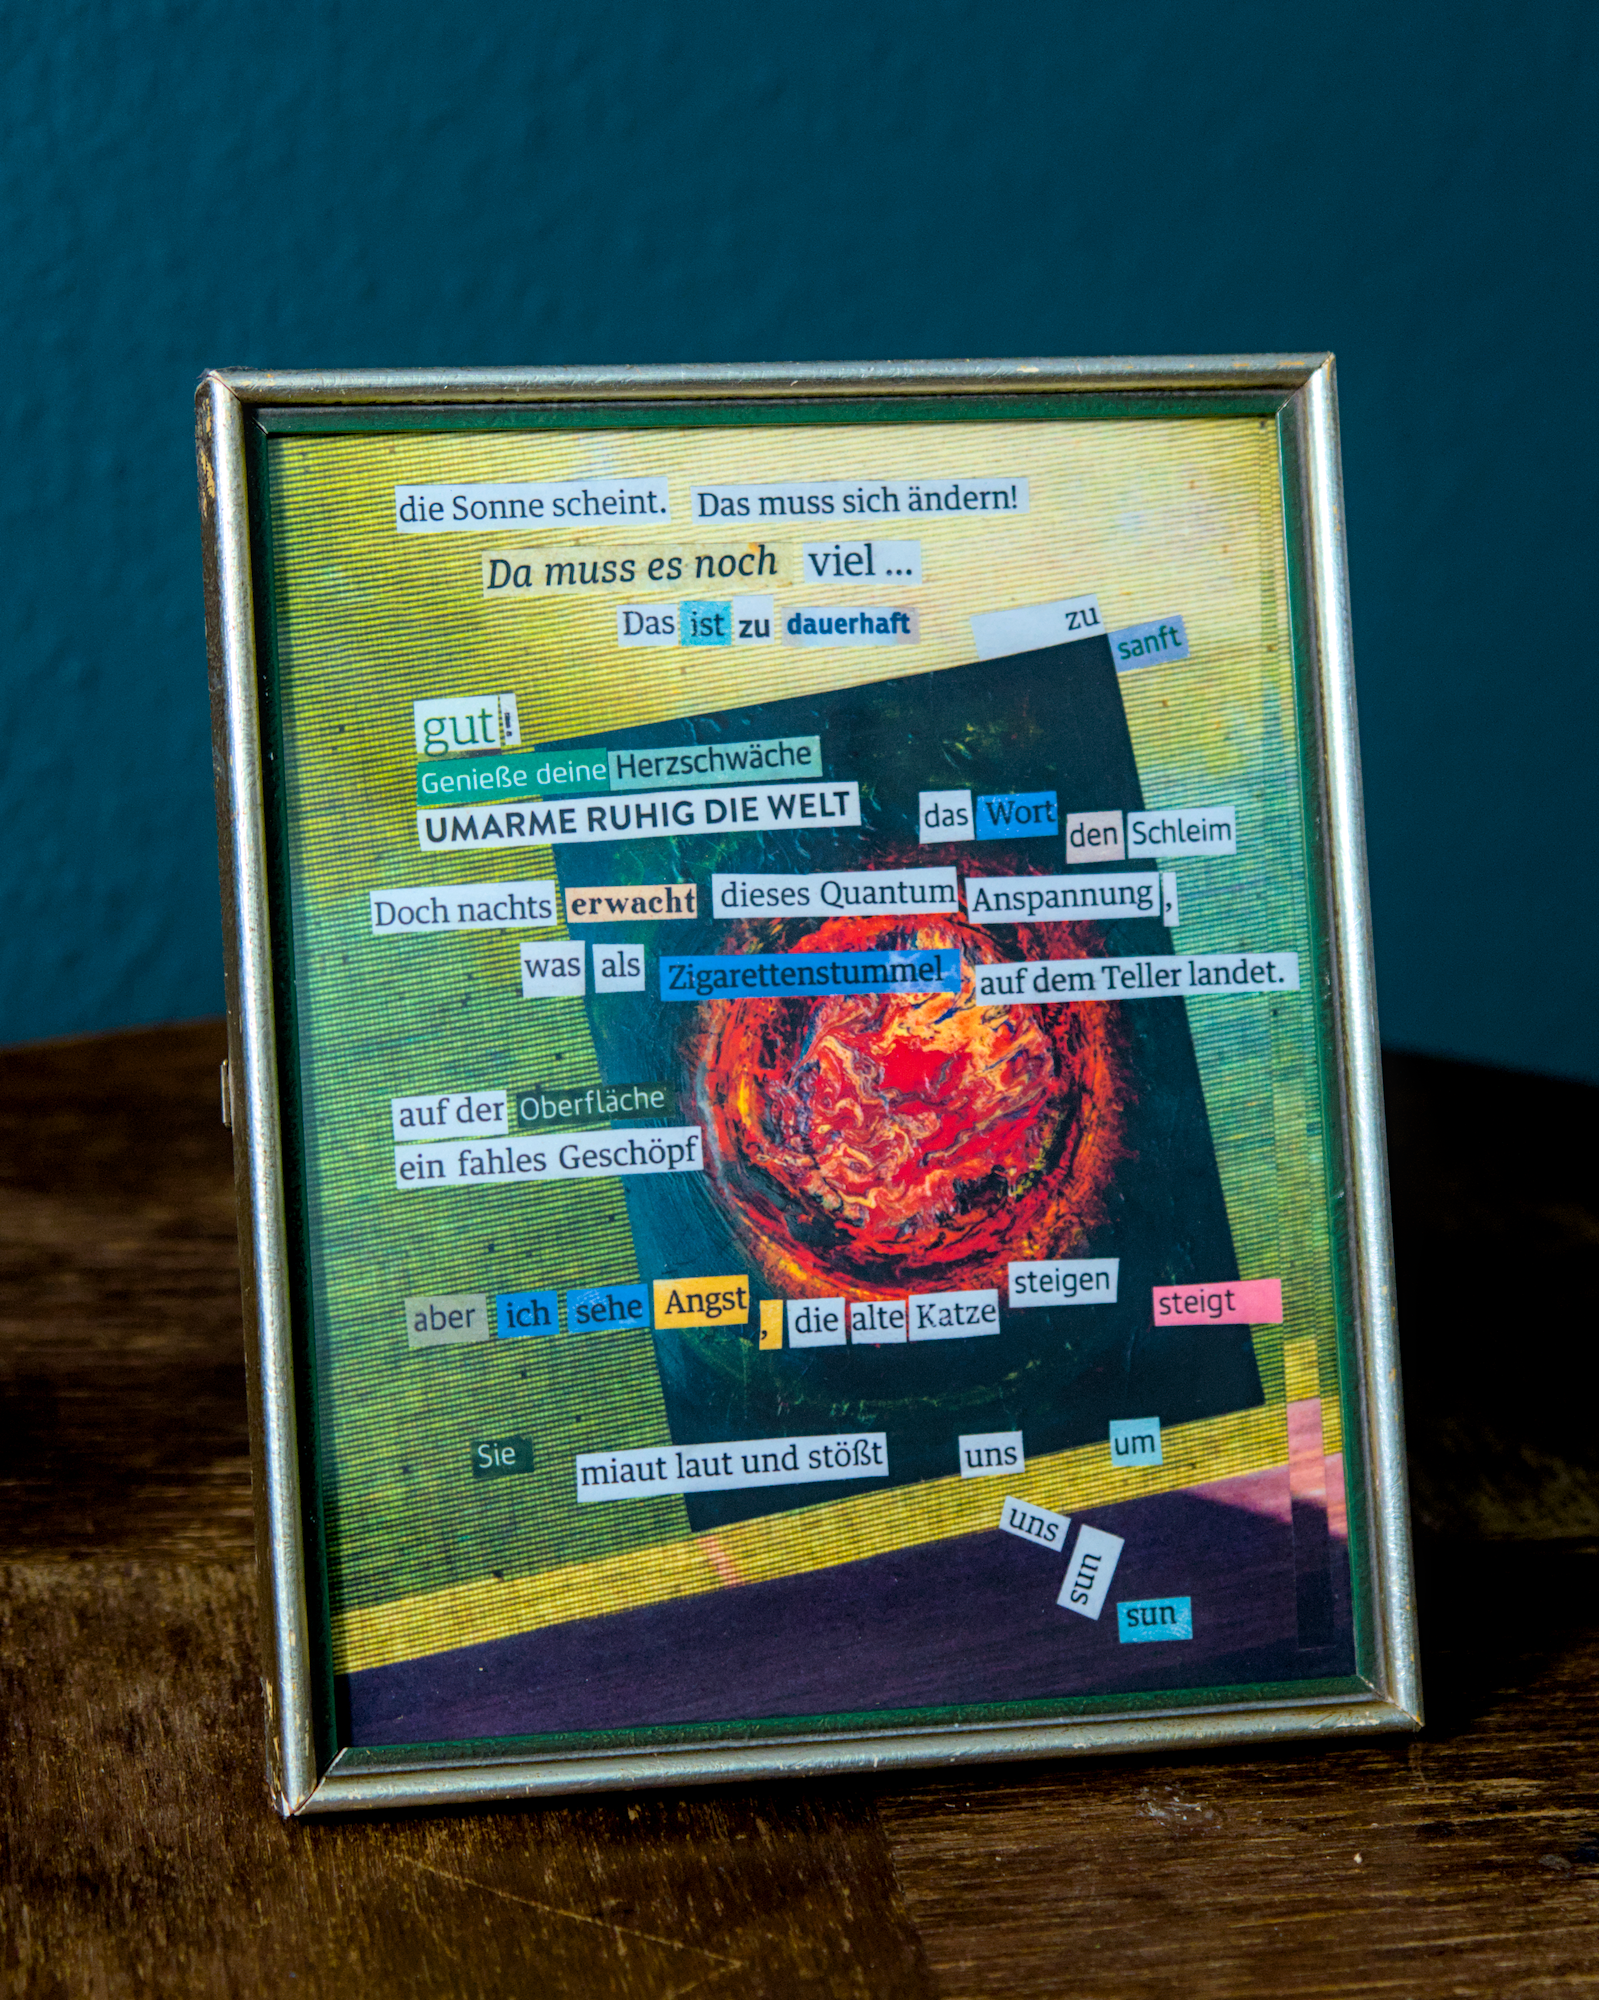 die Sonne scheint. Das muss sich ändern!
Da muss es noch viel ...
Das ist zu dauerhaft zu sanft
gut!
Genieße deine Herzschwäche
UMARME RUHIG DIE WELT das Wort den Schleim
Doch nachts erwacht dieses Quantum Anspannung,
was als Zigarettenstummel auf dem Teller landet.
auf der Oberfläche
ein fahles Geschöpf
aber ich sehe Angst, die alte Katze steigen steigt
Sie miaut laut und stößt uns um
uns
uns
sun